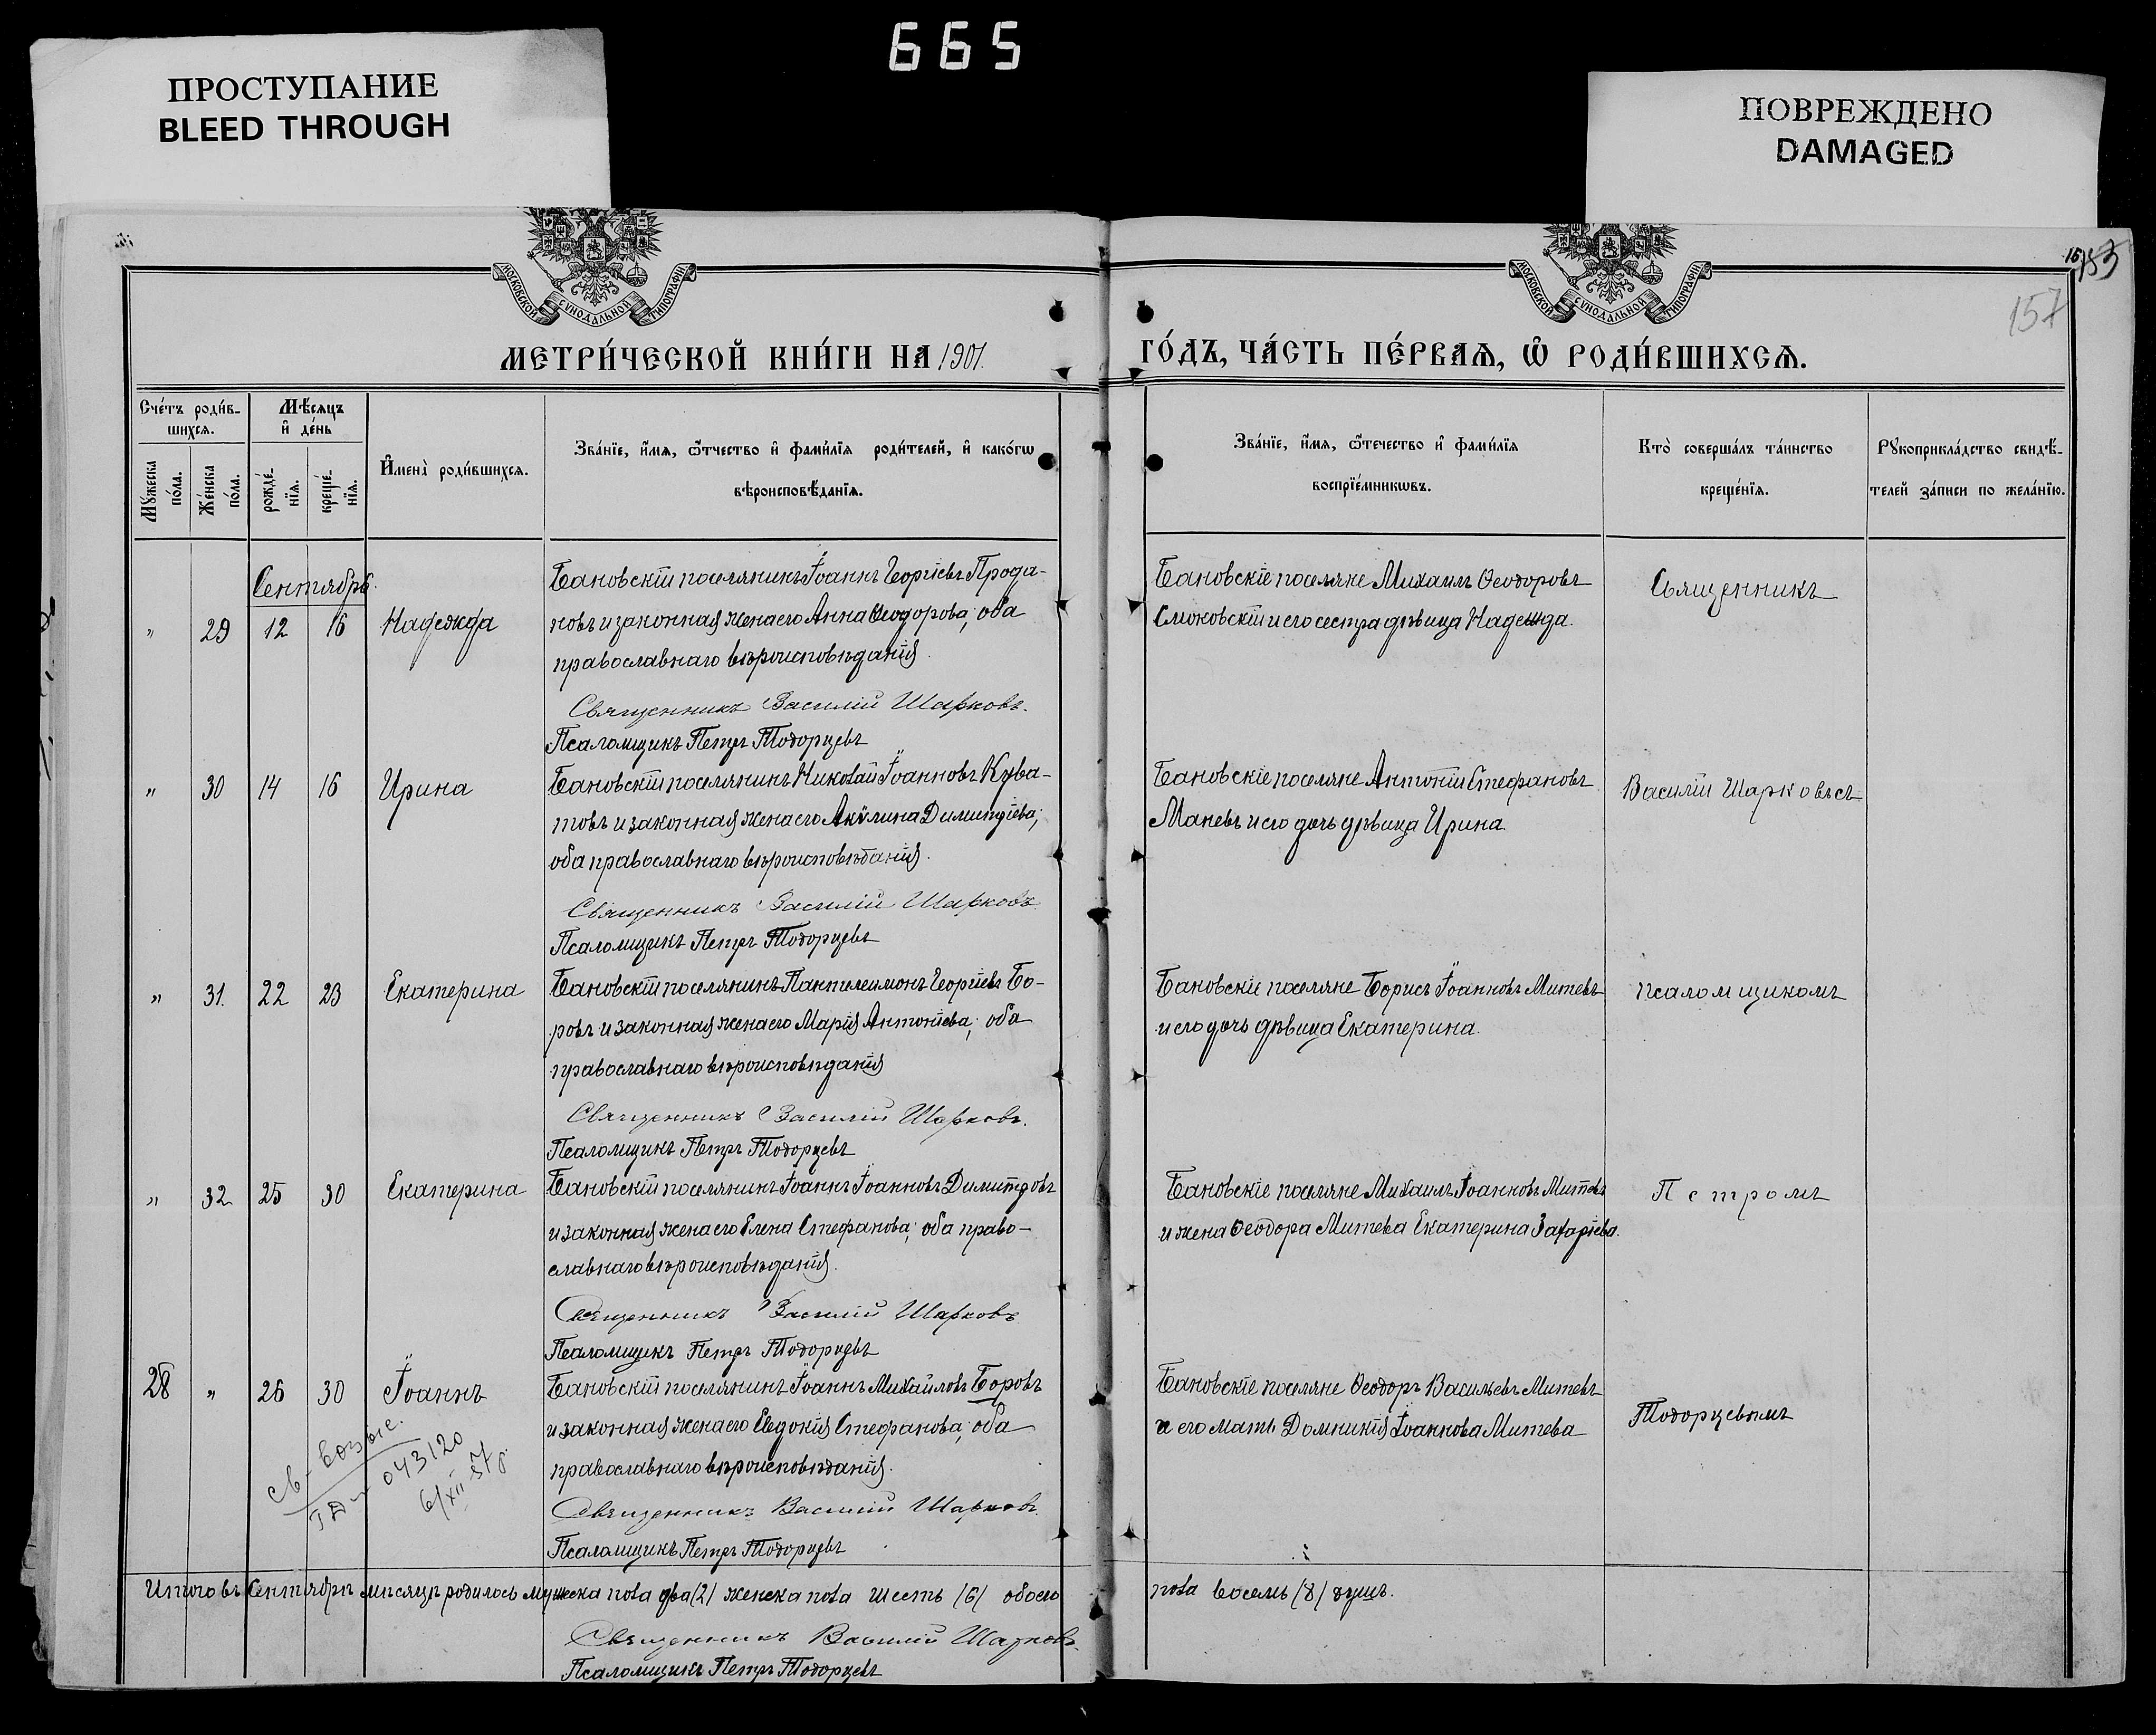 665
ПРОСТУПАНИЕ
BLEED THROUGH
ПОВРЕЖДЕНО
DAMAGED
МОСКОВСКОЙ СѴНОДАЛЬНОЙ ТИПОГРАФІИ
МОСКОВСКОЙ СѴНОДАЛЬНОЙ ТИПОГРАФІИ
153
157
МЕТРИ́ЧЕСКОЙ КНИ́ГИ НА 1901.
ГО́ДЪ, ЧА́СТЬ ПЕ́РВАѦ, Ѡ҆ РОДИ́ВШИХСѦ.
Сче́тъ роди́в-
шихсѧ.
Мѣ́сяцъ
и҆ де́нь
Мꙋ́жеска
по́ла.
Же́нска
по́ла.
рожде́-
нїѧ.
креще́-
нїѧ.
И҆мена̀ роди́вшихсѧ.
Зва́нїе, и҆́мѧ, ѻ҆́тчество и҆ фами́лїѧ роди́телей, и҆ како́гѡ
вѣроисповѣ́данїѧ.
Зва́нїе, и҆́мѧ, ѻ҆́течество и҆ фами́лїѧ
воспрїе́мникѡвъ.
Кто̀ соверша́лъ та́инство
креще́нїѧ.
Рꙋкоприкла́дство свидѣ́-
телей за́писи по жела́нїю.
Сентябрь.
" 29 12 16 Надежда
Бановскій поселянинъ Іоаннъ Георгіевъ Прода-
новъ и законная жена его Анна Ѳеодорова, оба
православнаго вѣроисповѣданія.
Священникъ Василій Шарковъ.
Псаломщикъ Петръ Тодорцевъ
Бановскіе поселяне Михаилъ Ѳеодоровъ
Смоковскій и его сестра дѣвица Надежда.
Священникъ
" 30 14 16 Ирина
Бановскій поселянинъ Николай Іоанновъ Курба-
товъ и законная жена его Акулина Димитріева;
оба православнаго вѣроисповѣданія.
Священникъ Василій Шарковъ
Псаломщикъ Петръ Тодорцевъ
Бановскіе поселяне Антоній Стефановъ
Маневъ и его дочь дѣвица Ирина.
Василій Шарковъ съ
" 31. 22 23 Екатерина
Бановскій поселянинъ Пантелеимонъ Георгіевъ Бо-
ровъ и законная жена его Марія Антоніева; оба
православнаго вѣроисповѣданія
Священникъ Василій Шарковъ.
Псаломщикъ Петръ Тодорцевъ
Бановскіе поселяне Борисъ Іоанновъ Митевъ
и его дочь дѣвица Екатерина.
псаломщикомъ
" 32 25 30 Екатерина
Бановскій поселянинъ Іоаннъ Іоанновъ Димитровъ
и законная жена его Елена Стефанова; оба право-
славнаго вѣроисповѣданія.
Священникъ Василій Шарковъ
Псаломщикъ Петръ Тодорцевъ
Бановскіе поселяне Михаилъ Іоанновъ Митевъ
и жена Ѳеодора Митева Екатерина Захаріева.
Петромъ
28 " 26 30 Іоаннъ
Бановскій поселянинъ Іоаннъ Михайловъ Боровъ
и законная жена его Евдокія Стефанова; оба
православнаго вѣроисповѣданія.
Священникъ Василій Шарковъ.
Псаломщикъ Петръ Тодорцевъ
Бановскіе поселяне Ѳеодоръ Васильевъ Митевъ
и его мать Домникія Іоаннова Митева
Тодорцевымъ
043120
6/XII-57
Итого въ Сентябрѣ мѣсяцѣ родилось мужеска пола два (2) женска пола шесть (6) обоего
пола восемь (8) душъ.
Священникъ Василій Шарковъ
Псаломщикъ Петръ Тодорцевъ